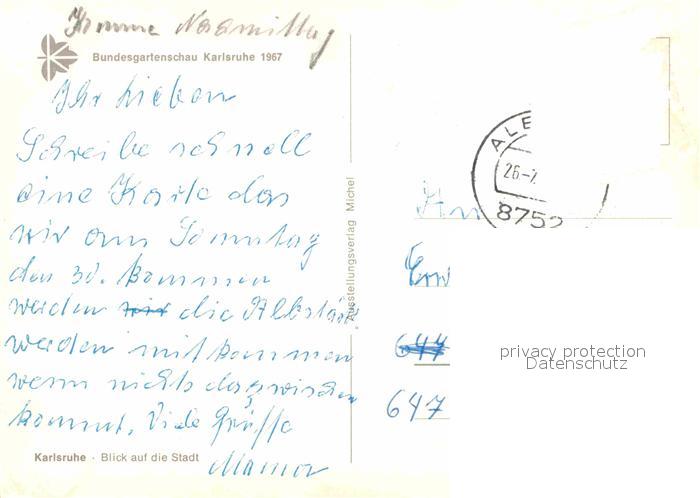 Komme Nachmittag
Bundesgartenschau Karlsruhe 1967
Ihr Lieben
Schreibe schnell
eine Karte das
wir am Sonntag
den 30. kommen
werden wir die
werden mitkommen
wenn nichts dazwischen
kommt. Viele Grüße
Mama
Karlsruhe · Blick auf die Stadt
Ausstellungsverlag Michel
ALE
26-7.
8752
An
Erw
644
647
privacy protection
Datenschutz